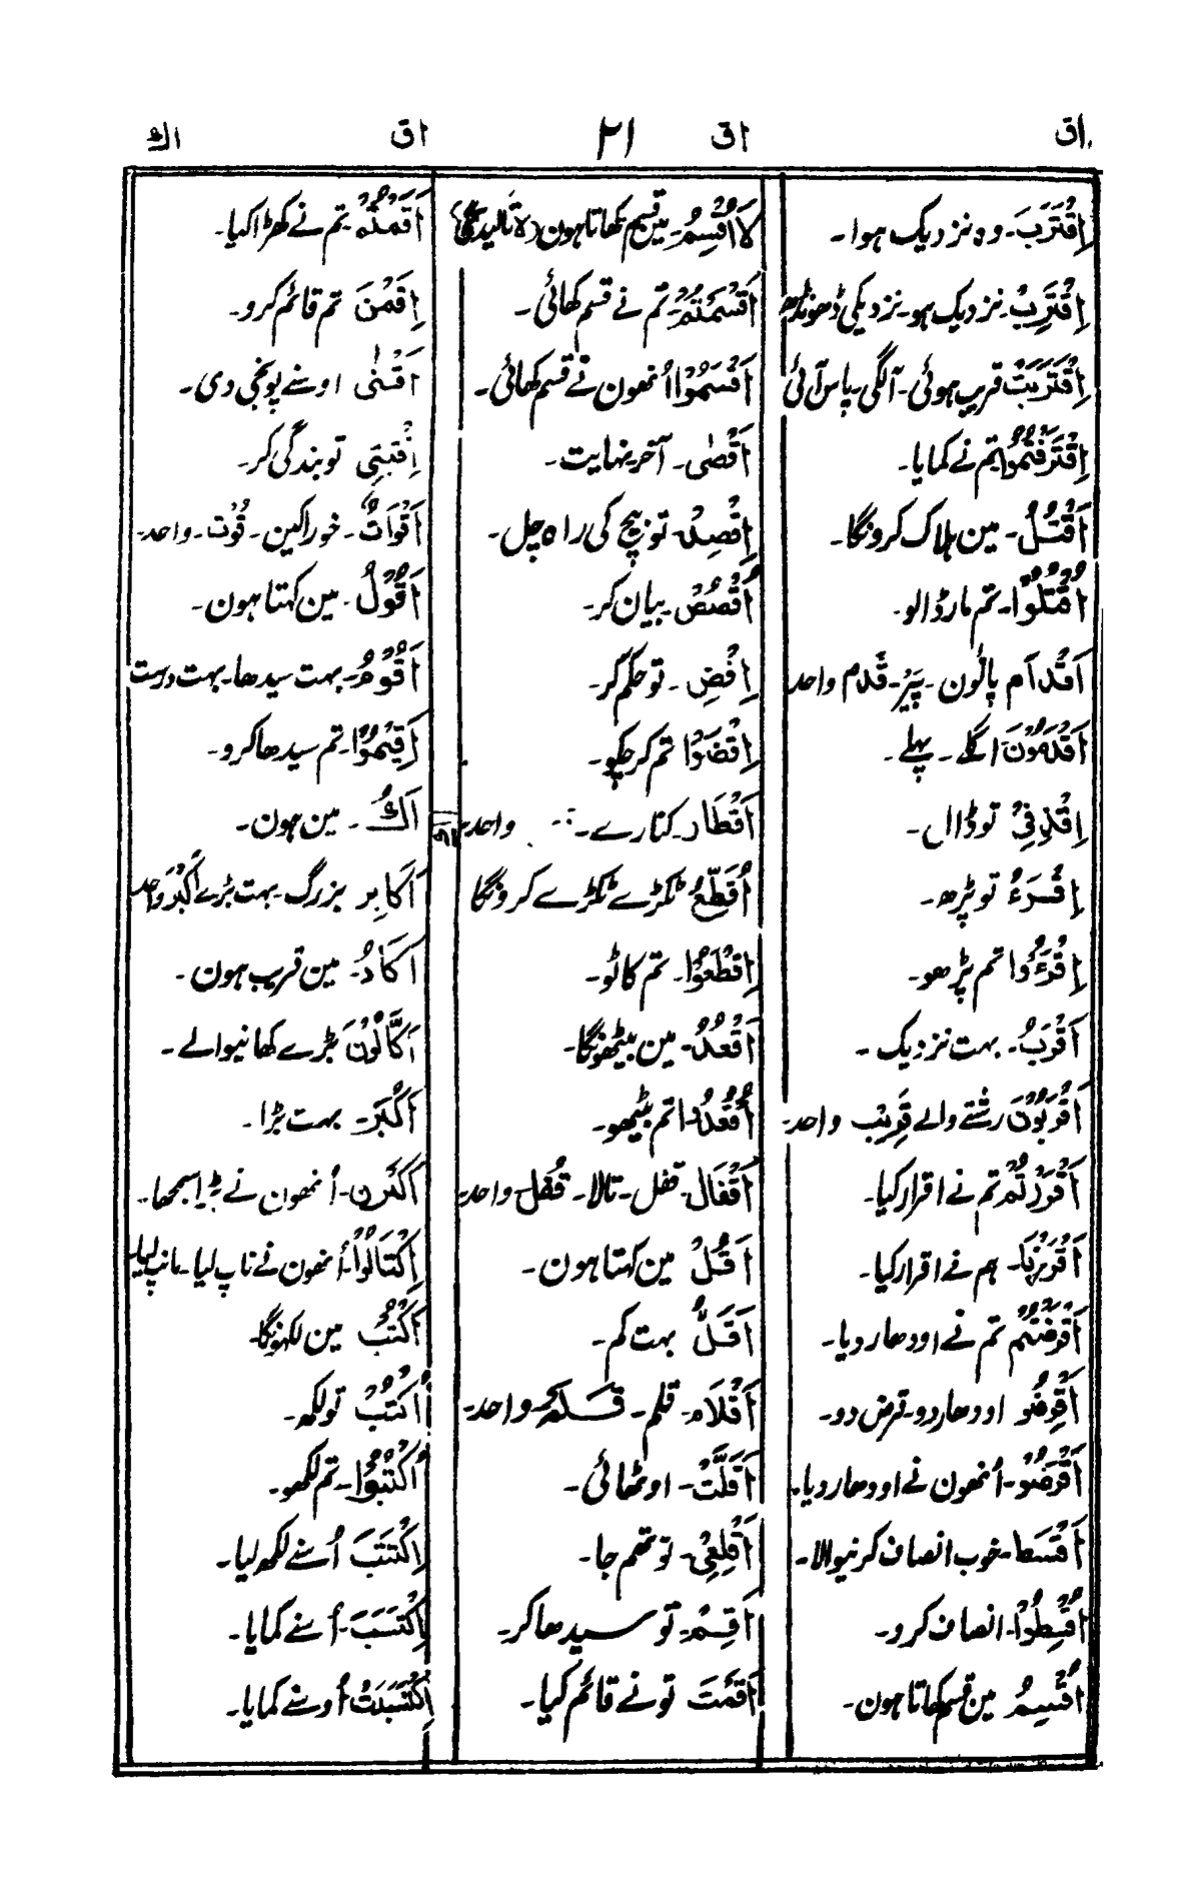 اق
اق
۲۱
اق
اك
اِقْتَرَبَ۔ وہ نزدیک ہوا۔
اِقْتَرِبْ۔ نزدیک ہو۔ نزدیکی ڈھونڈھ
اِقْتَرَبَتْ قریب ہوئی۔ آلگی پاس آئی
اِقْتَرَفْتُمُوا تم نے کمایا۔
اَقْتُلُ۔ مین ہلاک کرونگا۔
اُقْتُلُوْا۔ تم مار ڈالو۔
اَقْدَام پائون۔ پَیْر۔ قَدَم واحد
اَقْدَمُوْنَ اگلے۔ پہلے۔
اِقْذِفِیْ تو ڈال۔
اِقْرَءْ تو پڑھ۔
اِقْرَءُوْا تم پڑھو۔
اَقْرَبُ۔ بہت نزدیک۔
اَقْرَبُوْنَ رشتے والے قَرِیْب واحد۔
اَقْرَرْتُمْ تم نے اقرار کیا۔
اَقْرَرْنَا۔ ہم نے اقرار کیا۔
اَقْرَضْتُمْ تم نے اودھار دیا۔
اَقْرِضُو اودھار دو۔ قرض دو۔
اَقْرَضُوْ۔ اُنھون نے اودھار دیا۔
اَقْسَط۔ خوب انصاف کرنیوالا۔
اَقْسِطُوْا۔ انصاف کرو۔
اُقْسِمُ مین قسم کھاتا ہون۔
لَا اُقْسِمُ۔ مین قسم کھاتا ہون (لا تاکید کا)
اَقْسَمْتُمْ۔ تم نے قسم کھائی۔
اَقْسَمُوْا اُنھون نے قسم کھائی۔
اَقْصٰی۔ آخر نہایت۔
اِقْصِدْ۔ تو بیچ کی راہ چل۔
اُقْصُصْ۔ بیان کر۔
اِقْضِ۔ تو حکم کر۔
اِقْضَوْا تم کر چکو۔
اَقْطَار۔ کنارے۔ واحد۔
اُقَطِّعُ ٹکڑے ٹکڑے کرونگا
اِقْطَعُوْا۔ تم کاٹو۔
اَقْعُدُ۔ مین بیٹھونگا۔
اُقْعُدُوْا تم بیٹھو۔
اَقْفَال۔ قفل۔ تالا۔ قُفْل واحد۔
اَقُلْ مین کہتا ہون۔
اَقَلُّ بہت کم۔
اَقْلَام۔ قلم۔ قَلَم۔ واحد۔
اَقَلَّتْ۔ اوٹھائی۔
اَقْلِعِیْ۔ تو تھم جا۔
اَقِمْ۔ تو سیدھا کر۔
اَقَمْتَ تو نے قائم کیا۔
اَقَمْتُمْ تم نے کھڑا کیا۔
اِقَمْنَ تم قائم کرو۔
اَقْنٰی اوسنے پونجی دی۔
اِقْنَتِیْ تو بندگی کر۔
اَقْوَاتٌ۔ خوراکین۔ قُوْت۔ واحد۔
اَقُوْلُ۔ مین کہتا ہون۔
اَقْوَمُ۔ بہت سیدھا۔ بہت درست
اَقِیْمُوْا۔ تم سیدھا کرو۔
اَكُ۔ مین ہون۔
اَكَابِر بزرگ۔ بہت بڑے اَکْبَر واحد
اَكَادُ۔ مین قریب ہون۔
اَكَّالُوْنَ بڑے کھانیوالے۔
اَكْبَر۔ بہت بڑا۔
اَكْبَرْن۔ اُنھون نے بڑا سمجھا۔
اِكْتَالُوْا۔ اُنھون نے ناپ لیا۔ مانپ لیا۔
اَكْتُبُ مین لکھونگا۔
اُكْتُبْ تو لکھ۔
اُكْتُبُوْا۔ تم لکھو۔
اِكْتَتَبَ اُسنے لکھ لیا۔
اِكْتَسَبَ۔ اُسنے کمایا۔
اِكْتَسَبَتْ اُوسنے کمایا۔